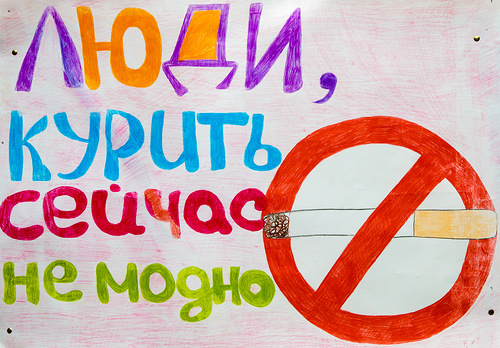 ЛЮДИ,
КУРИТЬ
сейчас
не модно